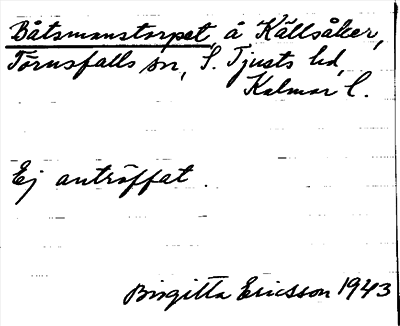 Båtsmanstorpet å Källsåker,
Törnsfalls sn, S. Tjusts hd,
Kalmar l.
Ej anträffat.
Birgitta Ericsson 1943